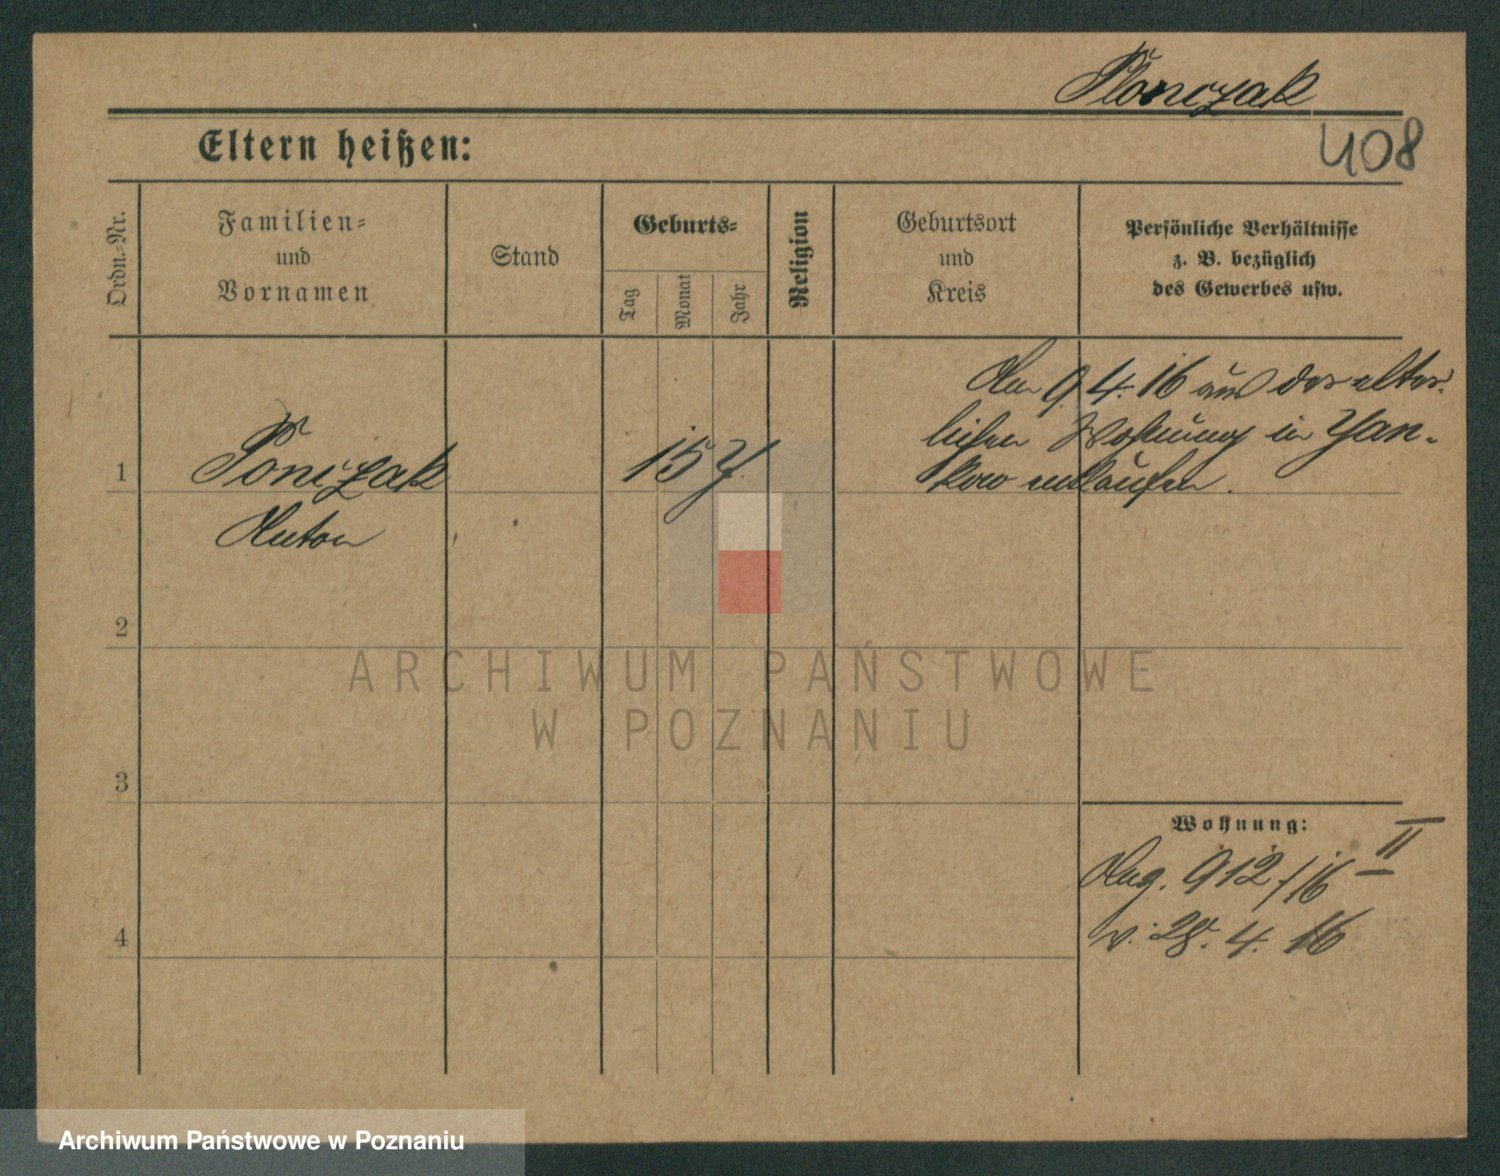 Plonczak
408
Eltern heißen:
Ordn.-Nr.
Familien-
und
Vornamen
Stand
Geburts-
Tag
Monat
Jahr
Religion
Geburtsort
und
Kreis
Persönliche Verhältnisse
z. B. bezüglich
des Gewerbes usw.
Am 9.4.16 aus der elter-
lichen Wohnung in Yan-
kow entlaufen.
1
Ponczak
15 J.
Anton
2
3
4
Wohnung:
Aug. 912/16 II
v. 28. 4. 16
ARCHIWUM PAŃSTWOWE
W POZNANIU
Archiwum Państwowe w Poznaniu